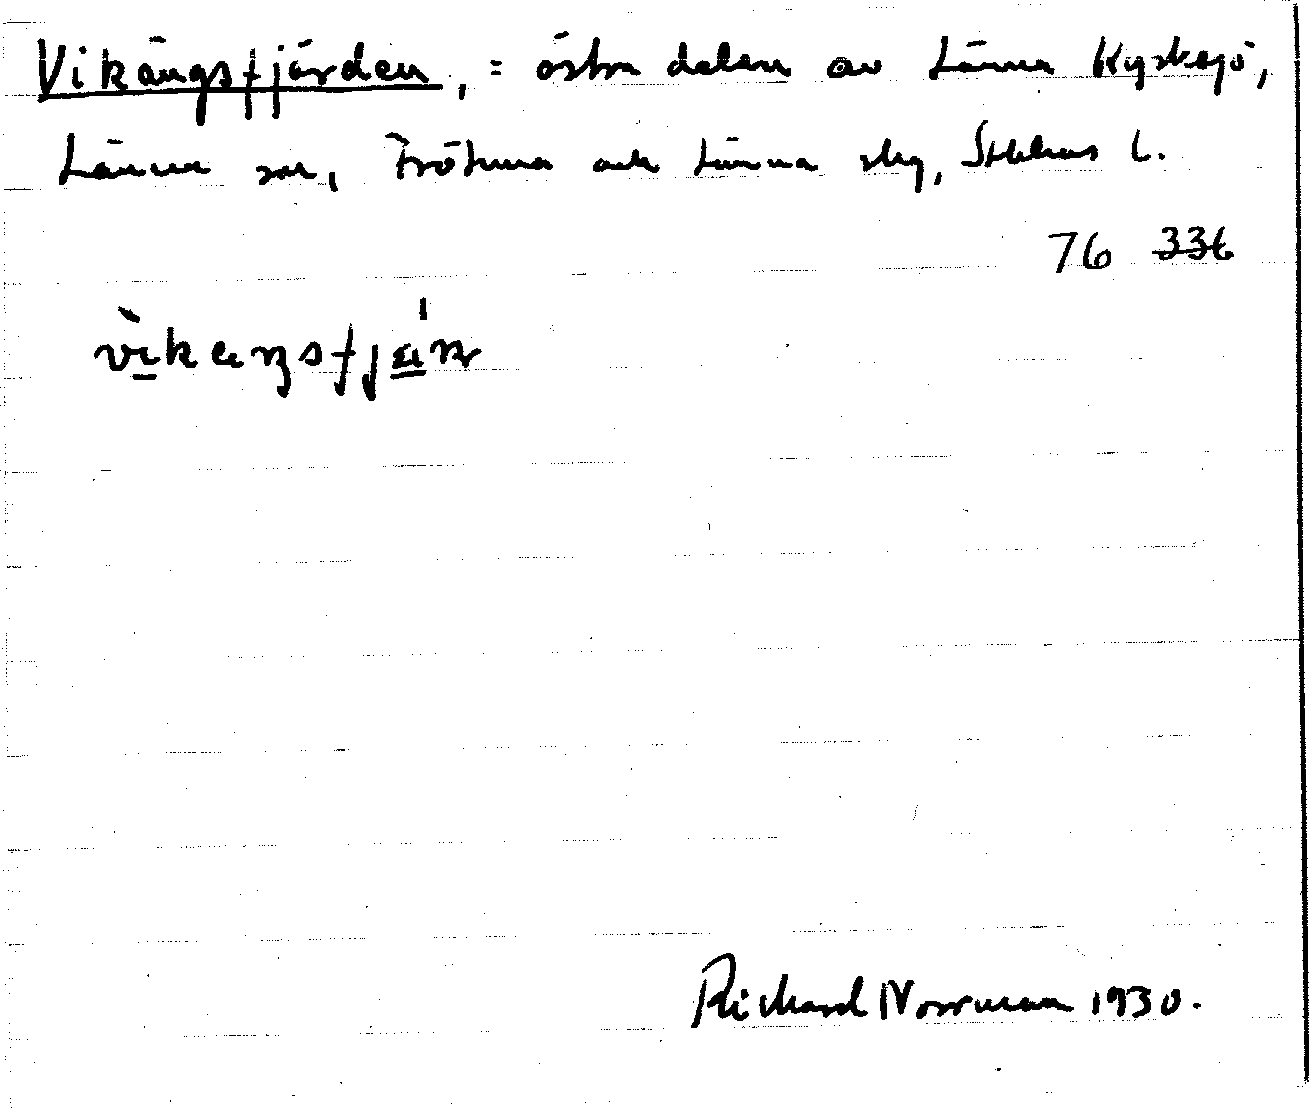 Vikängsfjärden, = östra delen av Länna Kyrksjö,
Länna sn, Frötuna och Länna skg, Sthlms l.
76 336
vikaŋsfjän
Richard Norrman 1930.